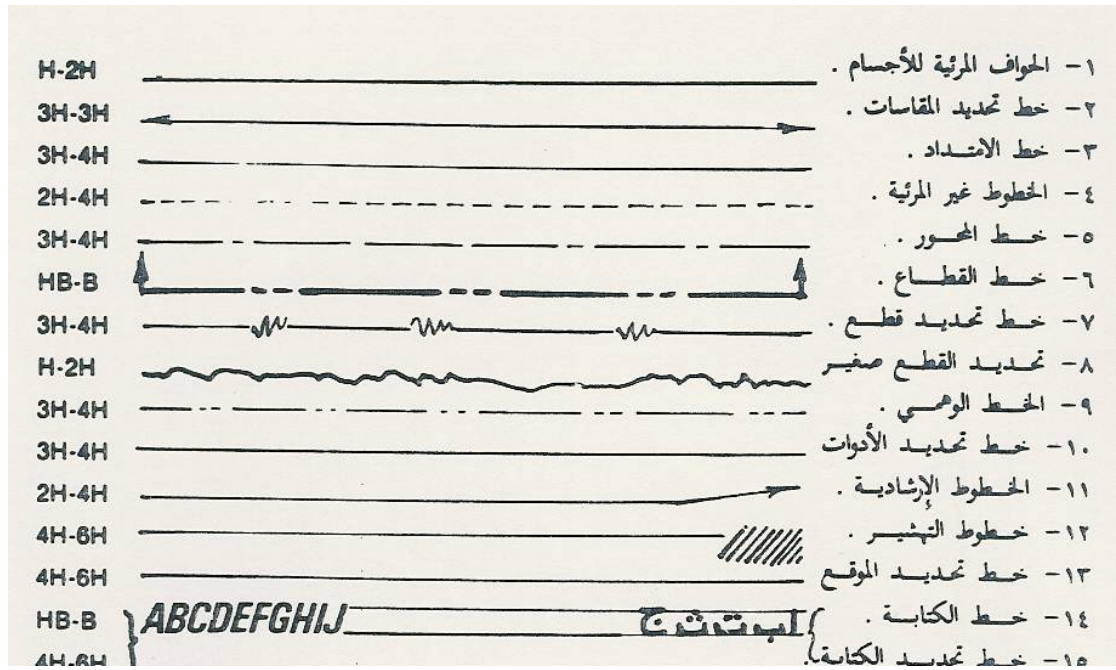 ١- الحواف المرئية للأجسام . H-2H
٢- خط تحديد المقاسات . 3H-3H
٣- خط الامتداد . 3H-4H
٤- الخطوط غير المرئية . 2H-4H
٥- خط المحور . 3H-4H
٦- خط القطاع . HB-B
٧- خط تحديد قطع . 3H-4H
٨- تحديد القطع صغير H-2H
٩- الخط الوهمي . 3H-4H
١٠- خط تحديد الأدوات 3H-4H
١١- الخطوط الإرشادية . 2H-4H
١٢- خطوط التهشير . 4H-6H
١٣- خط تحديد الموقع 4H-6H
١٤- خط الكتابة . ا ب ت ث ج ABCDEFGHIJ HB-B
١٥- خط تحديد الكتابة . 4H-6H